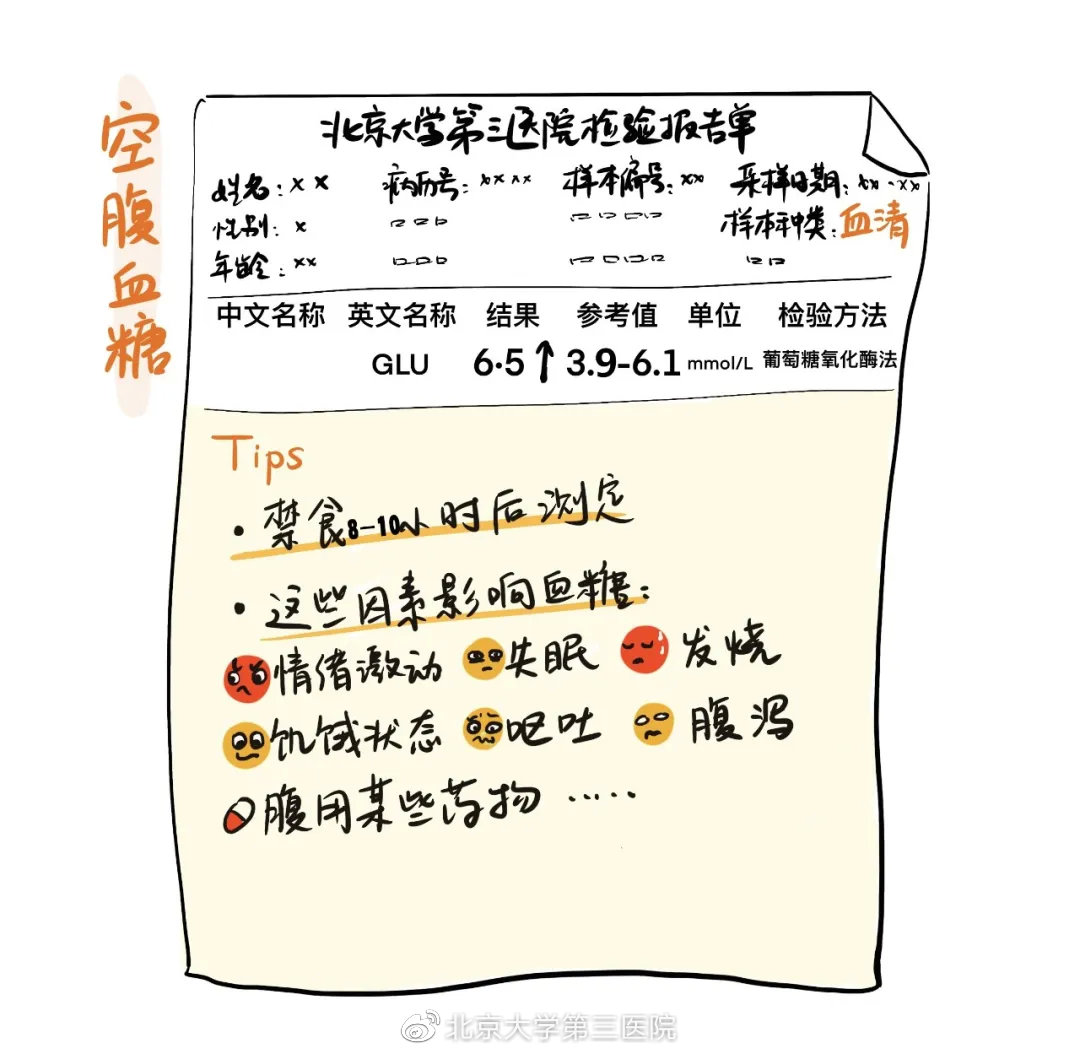 空腹血糖
北京大学第三医院检验报告单
姓名:×× 病历号:×××× 样本编号:×× 采样日期:××-××
性别:× 样本种类:血清
年龄:××
中文名称 英文名称 结果 参考值 单位 检验方法
GLU 6·5↑ 3.9-6.1 mmol/L 葡萄糖氧化酶法
Tips
·禁食8-10小时后测定
·这些因素影响血糖:
情绪激动 失眠 发烧
饥饿状态 呕吐 腹泻
腹用某些药物 ·····
北京大学第三医院